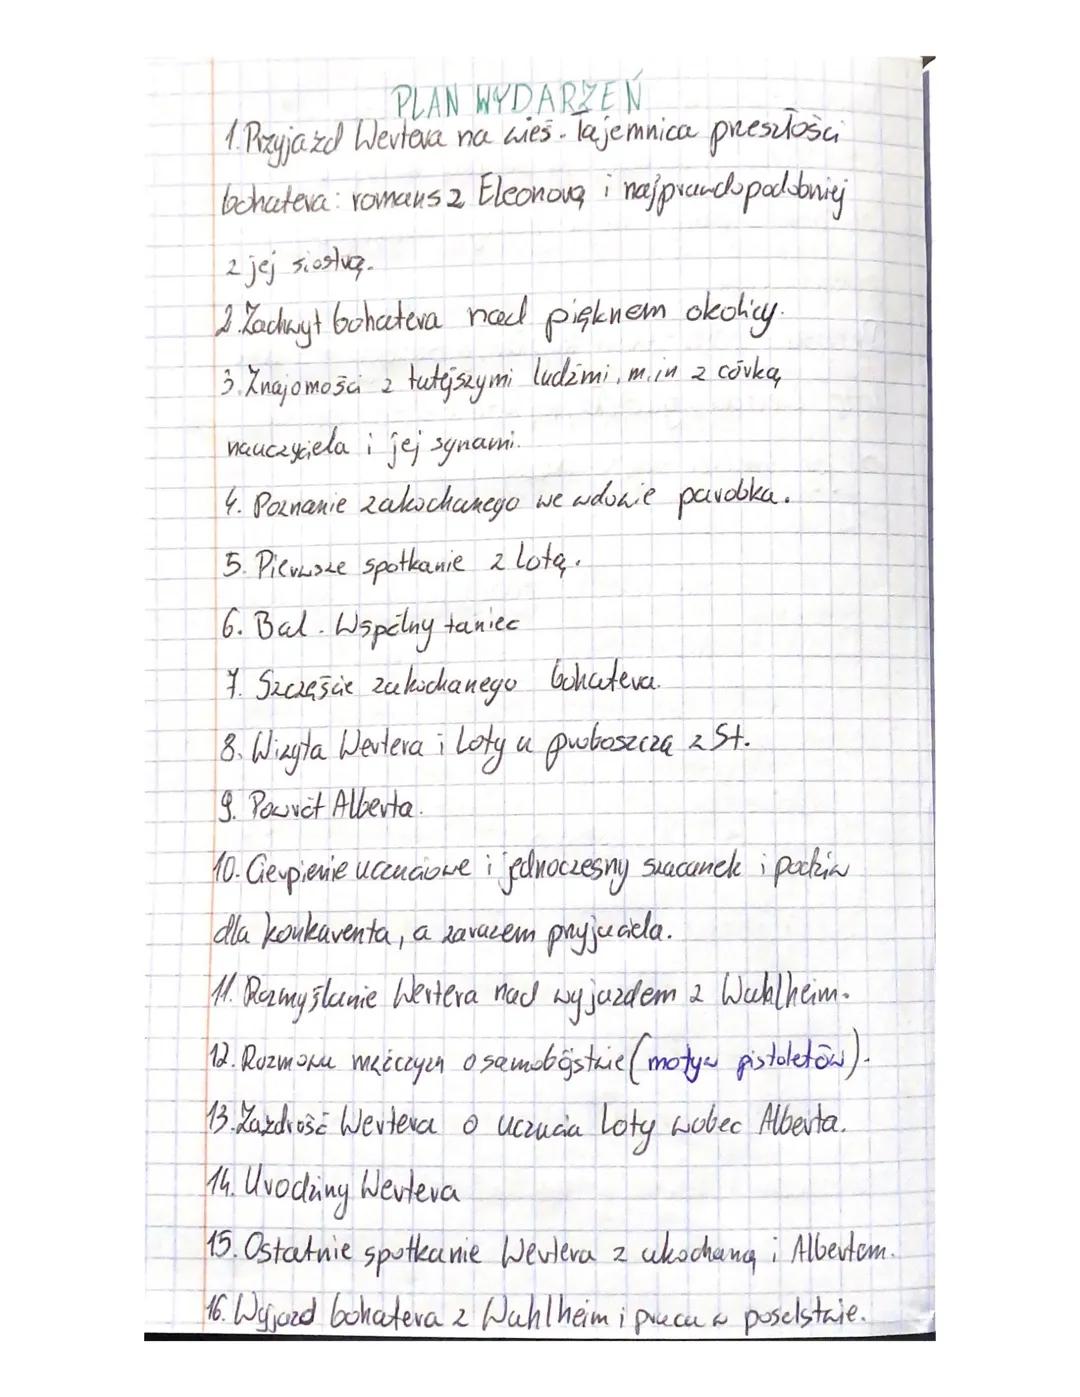 PLAN WYDARZEŃ
1. Przyjazd Wertera na wieś. Tajemnica przeszłości
bohatera: romans z Eleonorą i najprawdopodobniej
z jej siostrą.
2. Zachwyt bohatera nad pięknem okolicy.
3. Znajomości z tutejszymi ludźmi, m.in z córką
nauczyciela i jej synami.
4. Poznanie zakochanego we wdowie parobka.
5. Pierwsze spotkanie z Lotą.
6. Bal. Wspólny taniec
7. Szczęście zakochanego bohatera.
8. Wizyta Wertera i Loty u proboszcza z St.
9. Powrót Alberta.
10. Cierpienie uczuciowe i jednoczesny szacunek i podziw
dla konkurenta, a zarazem przyjaciela.
11. Rozmyślanie Wertera nad wyjazdem z Wahlheim.
12. Rozmowa mężczyzn o samobójstwie (motyw pistoletów).
13. Zazdrość Wertera o uczucia Loty wobec Alberta.
14. Urodziny Wertera
15. Ostatnie spotkanie Wertera z ukochaną i Albertem.
16. Wyjazd bohatera z Wahlheim i praca w poselstwie.